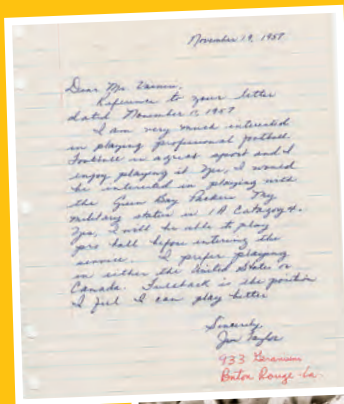 November 19, 1957
Dear Mr. Vainisi,
Reference to your letter
dated November 15, 1957
I am very much interested
in playing professional football.
Football is a great sport and I
enjoy playing it. Yes, I would
be interested in playing with
the Green Bay Packers. My
military status is 1A Category.
Yes, I will be able to play
pro ball before entering the
service. I prefer playing
in either the United States or
Canada. Fullback is the position
I feel I can play better
Sincerely,
Jim Taylor
933 Geranium
Baton Rouge - La.